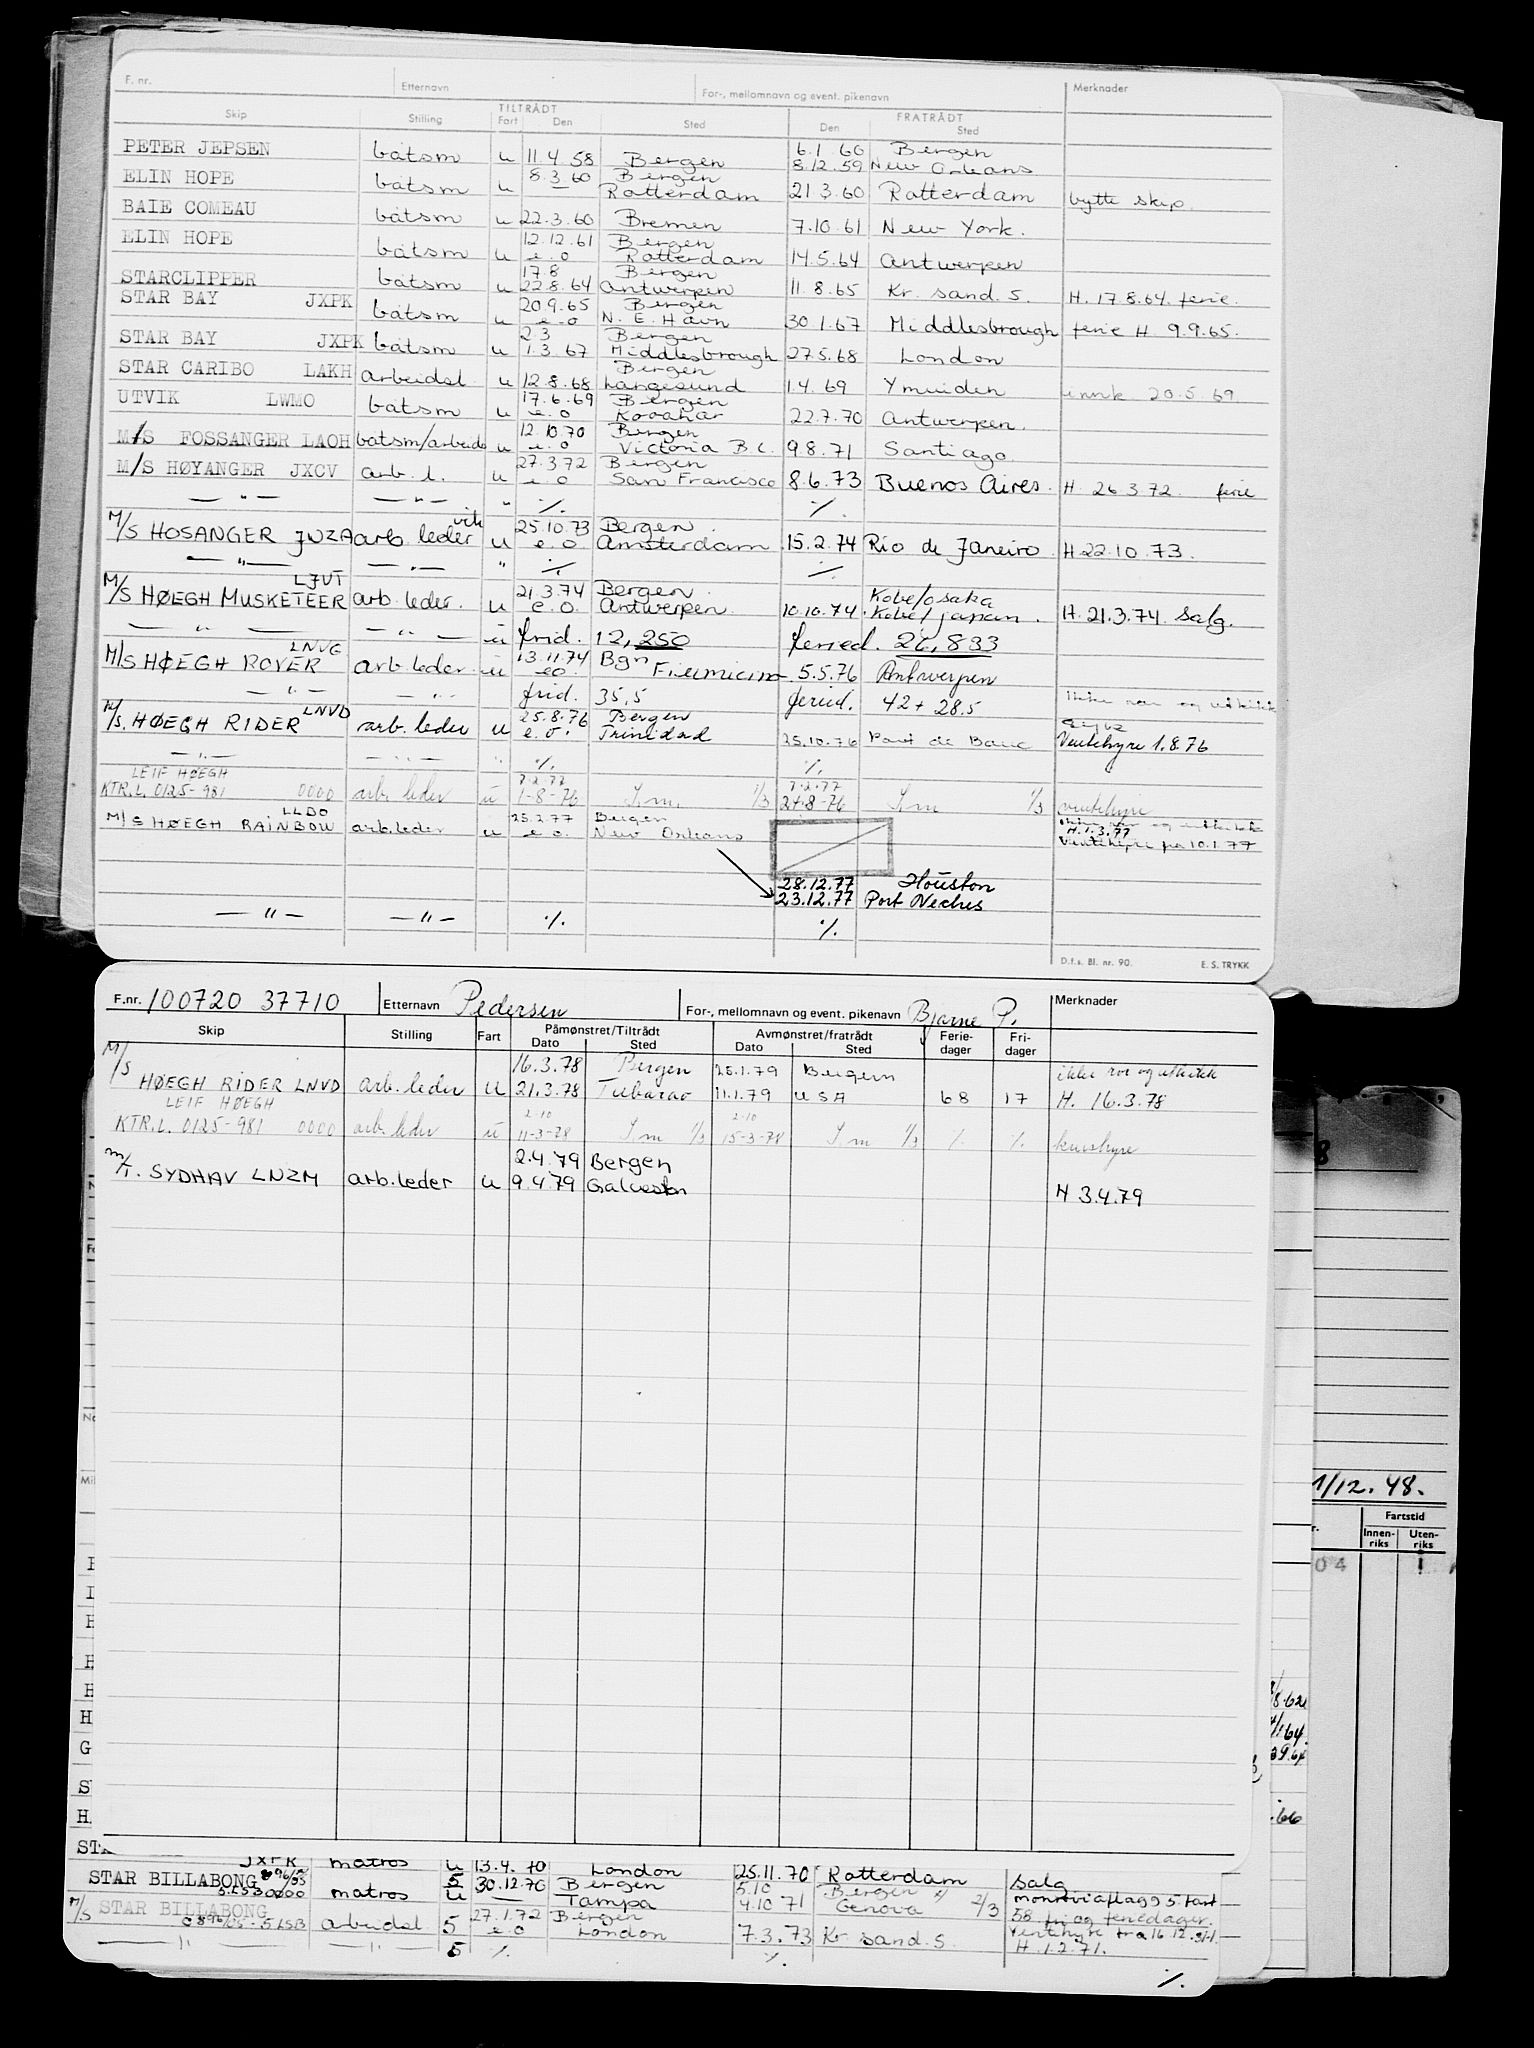 F. nr. Etternavn For-, mellomnavn og event. pikenavn Merknader
Skip Stilling TILTRÅDT Fart Den Sted FRATRÅDT Den Sted
PETER JEPSEN båtsm u 11.4.58 Bergen 6.1.60 Bergen
8.12.59 New Orleans
ELIN HOPE båtsm u 8.3.60 Bergen
— Rotterdam 21.3.60 Rotterdam bytte skip.
BAIE COMEAU båtsm u 22.3.60 Bremen 7.10.61 New York.
ELIN HOPE båtsm u 12.12.61 Bergen
e.o Rotterdam 14.5.64 Antwerpen
STARCLIPPER båtsm u 17.8 Bergen
22.8.64 Antwerpen 11.8.65 Kr. sand. S. H. 17.8.64. ferie.
STAR BAY JXPK båtsm u 20.9.65 Bergen
e.o N.E. Havn 30.1.67 Middlesbrough ferie H 9.9.65.
STAR BAY JXPK båtsm u 2.3 Bergen
1.3.67 Middlesbrough 27.5.68 London
STAR CARIBO LAKH arbeidsl u Bergen
12.8.68 Langesund 1.4.69 Ymuiden innk 20.5.69
UTVIK LWMO båtsm u 17.6.69 Bergen
e.o 22.7.70 Antwerpen.
M/S FOSSANGER LAOH båtsm/arbeids u 12.10.70 Bergen
e.o Victoria B.C. 9.8.71 Santiago.
M/S HØYANGER JXCV arb. l. u 27.3.72 Bergen
e.o San Francisco 8.6.73 Buenos Aires. H. 26.3.72. ferie
— " — — " — " ·/. ·/.
M/S HOSANGER JUZA arb. leder vik u 25.10.73 Bergen.
e.o Amsterdam 15.2.74 Rio de Janeiro. H 22.10.73.
— " — — " — " ·/. ·/.
LJVT
M/S HØEGH MUSKETEER arb. leder. u 21.3.74 Bergen. Kobe/osaka
e.o. Antwerpen. 10.10.74. Kobe/japan. H. 21.3.74. Salg.
— " — — " — u frid. 12,250 feried. 26,833
LNVG
M/S HØEGH ROVER arb. leder. u 13.11.74 Bgn
eo. Fiumicino 5.5.76 Antwerpen
— " — — " — frid. 35,5 feried. 42 + 28.5
LNVD
M/S. HØEGH RIDER arb. leder u 25.8.76 Bergen
e.o. Trinidad 25.10.76 Port de Bouc Ventehyre 1.8.76
— " — — " — " ·/. ·/.
LEIF HØEGH 7.2.77 7.2.77
KTR.L. 0125-981 0000 arb. leder u 1-8-76 S.m. 1/3 24-8-76 S.m 1/3 ventehyre
LLBO
M/S HØEGH RAINBOW arb.leder u 25.2.77 Bergen
e.o. New Orleans H. 1.3.77
Ventehyre fra 10.1.77
28.12.77 Houston
23.12.77 Port Neches
— " — — " — ·/. ·/.
D.f.s. Bl. nr. 90. E. S. TRYKK
F.nr. 100720 37710 Etternavn Pedersen For-, mellomnavn og event. pikenavn Bjarne P. Merknader
Skip Stilling Fart Påmønstret/Tiltrådt Dato Sted Avmønstret/fratrådt Dato Sted Ferie-dager Fri-dager
M/S 16.3.78 Bergen 25.1.79 Bergen ikke ror og utkikk
HØEGH RIDER LNVD arb. leder u 21.3.78 Tubarao 11.1.79 USA 68 17 H. 16.3.78
LEIF HØEGH 2-10 2-10
KTR.L. 0125-981 0000 arb. leder u 11-3-78 S.m 1/3 15-3-78 S.m 1/3 ·/. ·/. kurshyre
2.4.79 Bergen
m/T. SYDHAV LNZM arb.leder u 9.4.79 Galveston H 3.4.79
1/12.48.
Fartstid
Innen-riks Uten-riks
04 1
JXPK matros u 13.4.70 London 25.11.70 Rotterdam salg
STAR BILLABONG 5 30.12.70 Bergen 5.10 Bergen
matros u — Tampa 4.10.71 Genova 2/3 monroviaflagg 5 fart
M/S STAR BILLABONG 27.1.72 Bergen 58 fri og feriedager.
5LSB arbeidsl 5 e.o London 7.3.73 Kr sand. S. Ventehyre fra 16.12.
— " — " 5 ·/. ·/. H. 1.2.71.
·/.